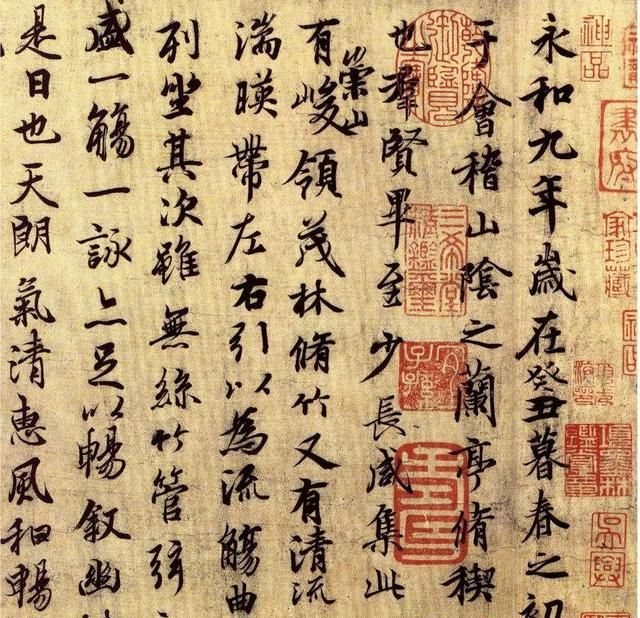 神品
永和九年歲在癸丑暮春之初
于會稽山陰之蘭亭脩稧
也羣賢畢至少長咸集此
崇山
有峻領茂林脩竹又有清流
湍暎帶左右引以為流觴曲
列坐其次雖無絲竹管弦
盛一觴一詠亦足以暢敘幽
是日也天朗氣清惠風和暢
三希堂精鑑璽
宜子孫